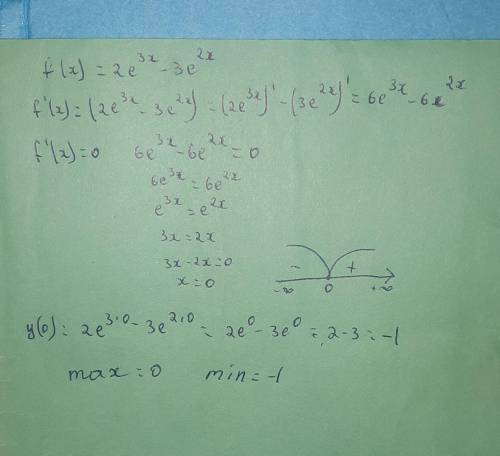 f(x) = 2e^3x - 3e^2x
f'(x) = (2e^3x - 3e^2x)' = (2e^3x)' - (3e^2x)' = 6e^3x - 6e^2x
f'(x) = 0 6e^3x - 6e^2x = 0
6e^3x = 6e^2x
e^3x = e^2x
3x = 2x
3x - 2x = 0
x = 0
- +
-∞ 0 +∞
y(0) = 2e^3·0 - 3e^2·0 = 2e^0 - 3e^0 = 2 - 3 = -1
max = 0 min = -1